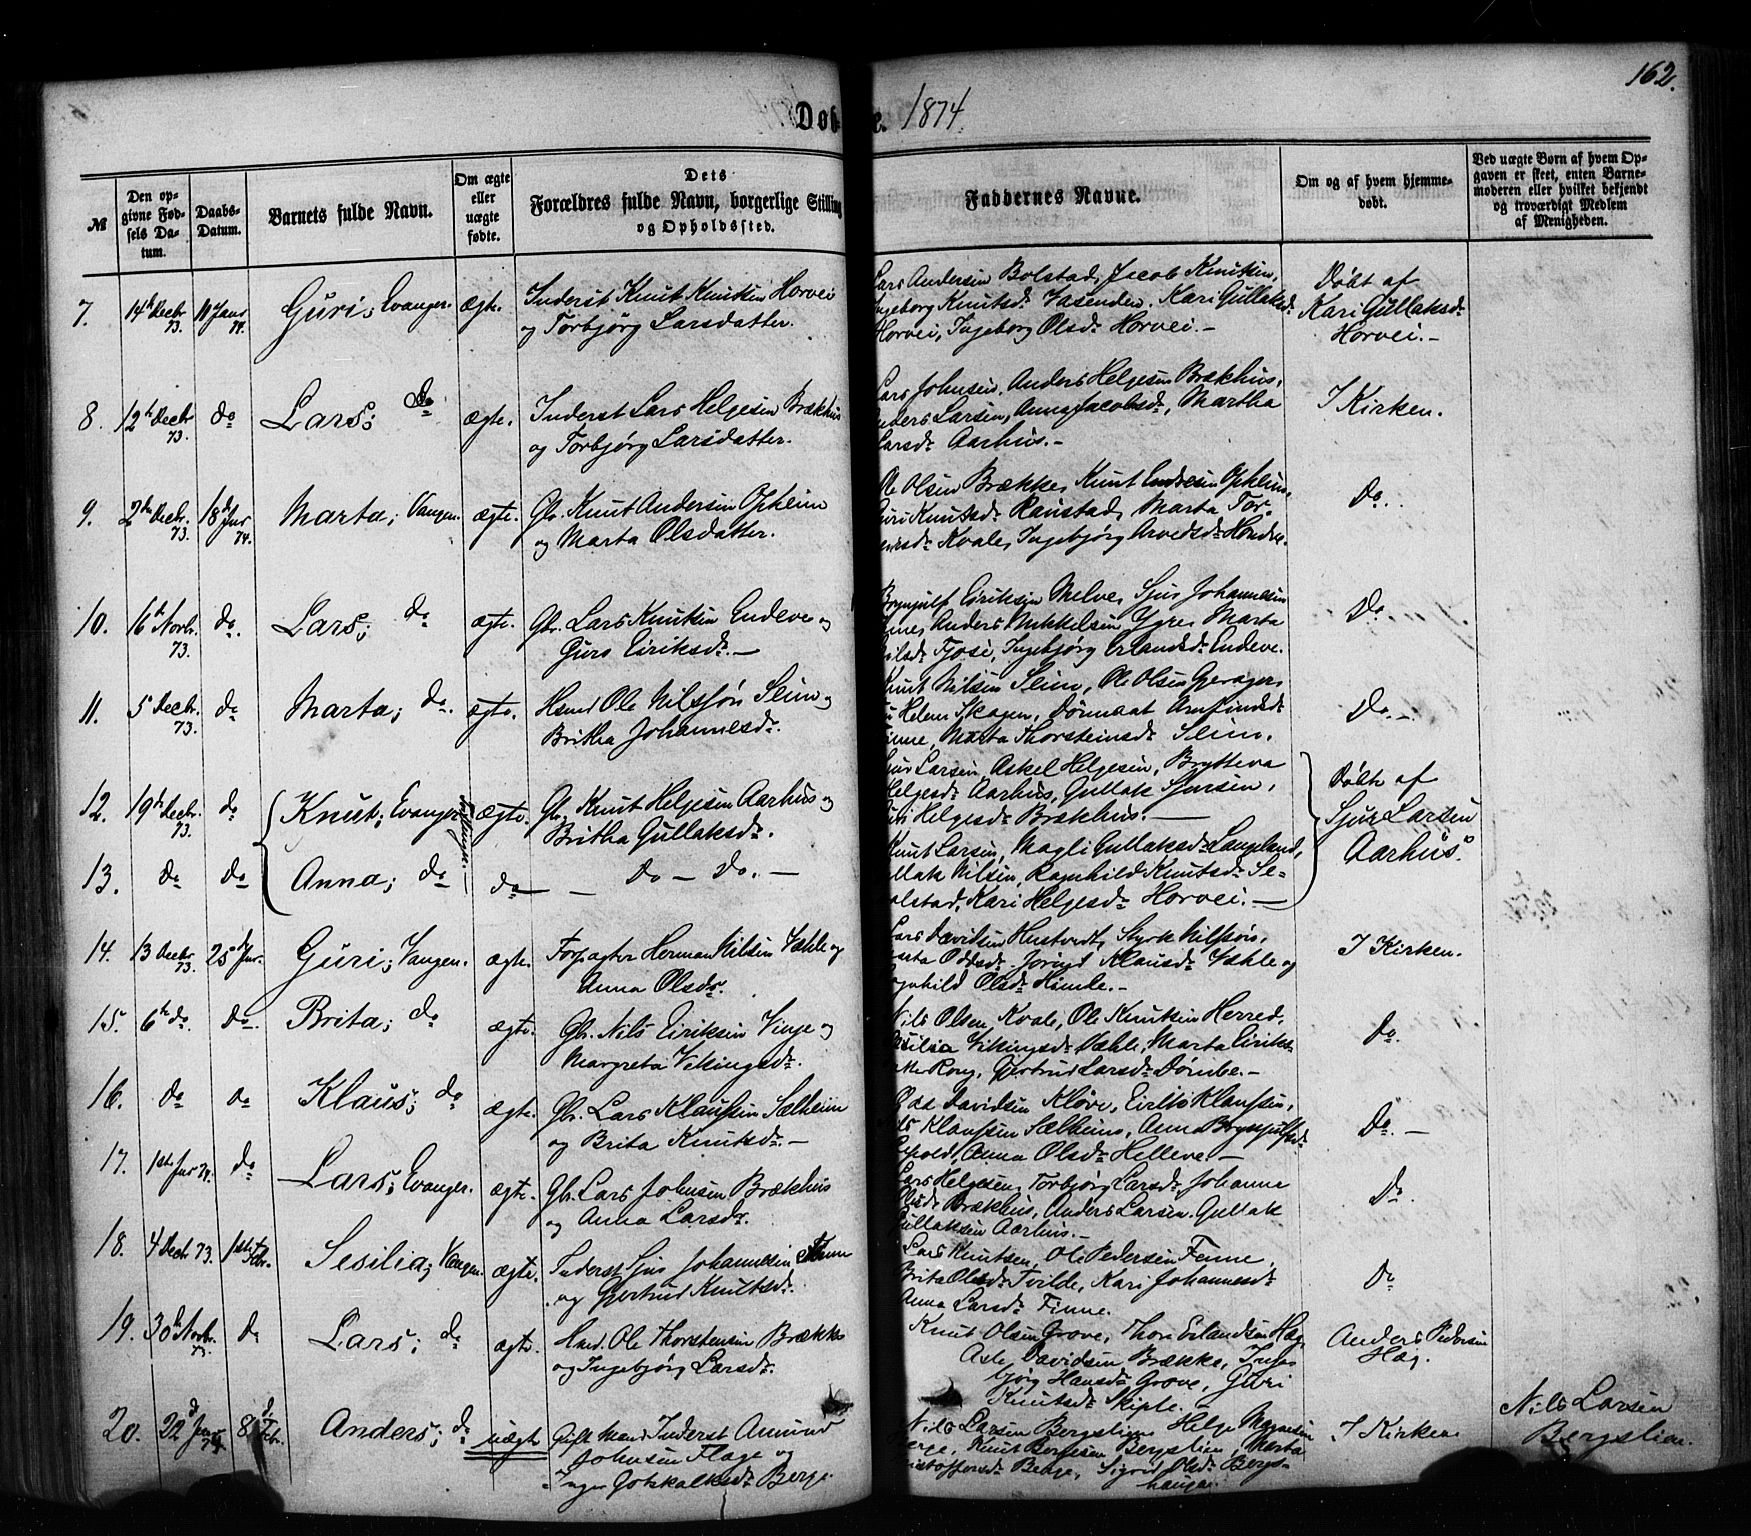 162.
Døbte. 1874.
№
Den opgivne Fødsels Datum.
Daabs-Datum.
Barnets fulde Navn.
Om ægte eller uægte fødte.
Dets Forældres fulde Navn, borgerlige Stilling og Opholdssted.
Faddernes Navne.
Om og af hvem hjemmedøbt.
Ved uægte Børn af hvem Opgaven er skeet, enten Barnemoderen eller hvilket bekjendt og troværdigt Medlem af Menigheden.
7. 14de Decbr 73. 11 Janr 74. Guri; Evanger. ægte. Inderst Knut Knutsen Horvei
og Torbjørg Larsdatter.
Lars Andersen Bolstad, Jacob Knutsen,
Ingeborg Knutsdr Vasenden, Kari Gullaksdr
Horvei, Ingeborg Olsdr Horvei.-
Døbt af
Kari Gullaksdr
Horvei.-
8. 12te Decbr 73. do Lars; do ægte. Inderst Lars Helgesen Brækhus
og Torbjørg Larsdatter.
Lars Johnsen, Anders Helgesen Brækhus,
Anders Larsen, Anna Jacobsdr, Martha
Larsdr Aarhus.-
I Kirken.
9. 2den Decbr. 73. 18de Janr 74. Marta; Vangen. ægte. Gbr. Knut Andersen Opheim
og Marta Olsdatter.
Ole Olsen Brække, Knut Endresen Opheim,
Guri Knutsdr Rønstad, Marta Tor-
Kvale, Ingebjørg Arvedsdr
Do.
10. 16de Novbr. 73. do. Lars; do ægte. Gbr. Lars Knutsen Endeve og
Guro Eiriksdr.-
Brynjulf Eiriksen Melve, Sjur Johannesen
Anders Mikkelsen Ygre, Marta
Nilsdr Fjose, Ingebjørg Erlandsdr Endeve.
Do
11. 5 Decbr. 73. do Marta; do. ægte. Hsmd Ole Nilssøn Seim og
Britha Johannesdr.
Knut Nilsen Seim, Ole Olsen
Helene Skogen, Arnfindsdr
Finne, Marta Thorsteinsdr Seim.
Do.-
12. 19de Decbr. 73. do Knut; Evanger. Tvillinger. ægte. Gbr. Knut Helgesen Aarhus og
Britha Gullaksdr.
Sjur Larsen, Askel Helgesen, Brytteva
Helgesdr Aarhus, Gullak Sjursen,
Guri Helgesdr Brækhus.-
Døbte af
Sjur Larsen
Aarhus.
13. do do Anna; do do - Do - Do.-
Knut Larsen, Magli Gullaksdr Langeland,
Gullak Nilsen, Ragnhild Knutsdr Se-
lstad, Kari Helgesdr Horvei.-
14. 13 Decbr 73. 25 Janr. Guri; Vangen. ægte. Forpagter Herman Nilsen Væhle og
Anna Olsdr.
Lars Davidsen Hustvedt, Styrk Nilssøn,
Marta Oddsdr, Jorand Klausdr Væhle og
Ragnhild Olsdr Himle.-
I Kirken.
15. 6te do. Do. Brita; do ægte. Gbr. Nils Eiriksen Vinge og
Margreta Vikingsdr.
Nils Olsen Kvale, Ole Knutsen Herred,
Sesilia Vikingsdr Væhle, Marta Eiriks-
datter Rong, Gjertrud Larsdr Dømbe.-
Do.
16. do do Klaus; do ægte. Gbr. Lars Klaussen Sælheim
og Brita Knutsdr.-
Davidsen Kløve, Eirik Klaussen,
Nils Klaussen Sælheim, Anna Brynjulfsdr
Anna Olsdr Helleve.-
Do.-
17. 1ste Janr 74. do Lars; Evanger. ægte. Gbr. Lars Johnsen Brækhus
og Anna Larsdr.
Lars Helgesen, Torbjørg Larsdr, Johanna
Olsdr Brækhus, Anders Larsen, Gullak
Gullaksen Aarhus.-
Do.
18. 4 Decbr 73. 1ste Febr. Sesilia; Vangen. ægte. Inderst Sjur Johannesen Finne
og Gjertrud Knutsdr.
Lars Knutsen, Ole Pedersen Finne,
Brita Olsdr Tvilde, Kari Johannesdr
Anna Larsdr Finne.
Do
19. 30te Novbr. 73. do Lars; do ægte. Hmd. Ole Thorstensen Brække
og Ingebjørg Larsdr.
Knut Olsen Grove, Thore Erlandsen Hæg,
Asle Davidsen Brække, Inge-
bjørg Hansdr Grove, Guri
Knutsdr Skiple.
Anders Pedersen
Hæg.
20. 22d Janr 74. 8d Feb. Anders; do uægte Gift Mand Inderst Amund
Johnsen Flage og
Inger Gotskalksdr Berge.
Nils Larsen Bergslien, Helge Magnesen
Berge, Knut Bergesen Bergslien, Marta
Kristoffersdr Berge, Sigrid Olsdr Bergs-
haugen.
I Kirken.
Nils Larsen
Bergslien.